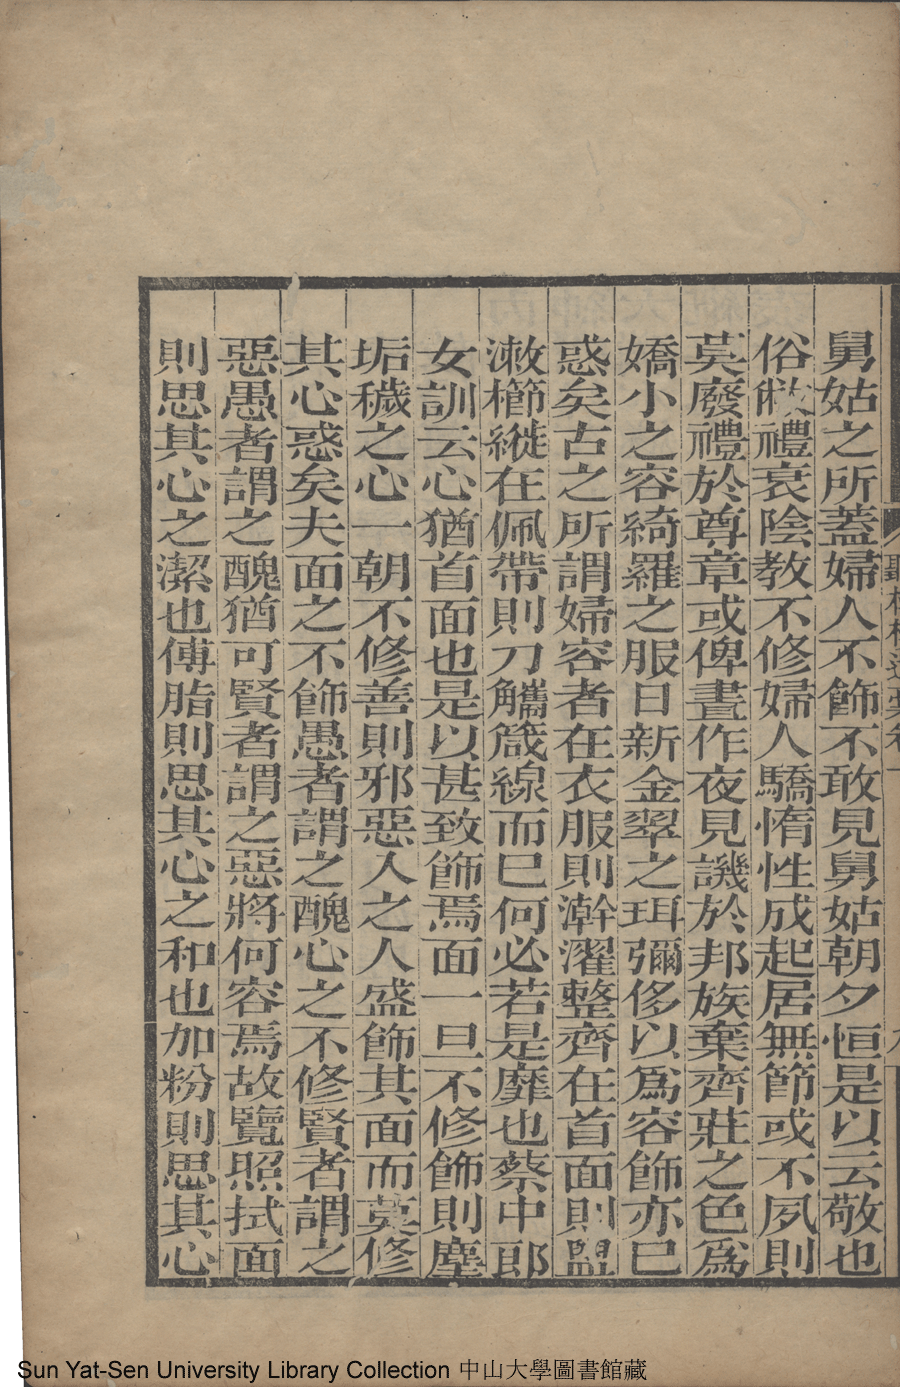 舅姑之所蓋婦人不飾不敢見舅姑朝夕恒是以云敬也
俗敝禮衰陰教不修婦人驕惰性成起居無節或不夙則
莫廢禮於尊章或俾晝作夜見譏於邦族棄齊莊之色爲
嬌小之容綺羅之服日新金翠之珥彌侈以爲容飾亦已
惑矣古之所謂婦容者在衣服則澣濯整齊在首面則盥
漱櫛縰在佩帶則刀觿箴線而已何必若是靡也蔡中郎
女訓云心猶首面也是以甚致飾焉面一旦不修飾則塵
垢穢之心一朝不修善則邪惡入之人盛飾其面而莫修
其心惑矣夫面之不飾愚者謂之醜心之不修賢者謂之
惡愚者謂之醜猶可賢者謂之惡將何容焉故覽照拭面
則思其心之潔也傅脂則思其心之和也加粉則思其心
Sun Yat-Sen University Library Collection 中山大學圖書館藏